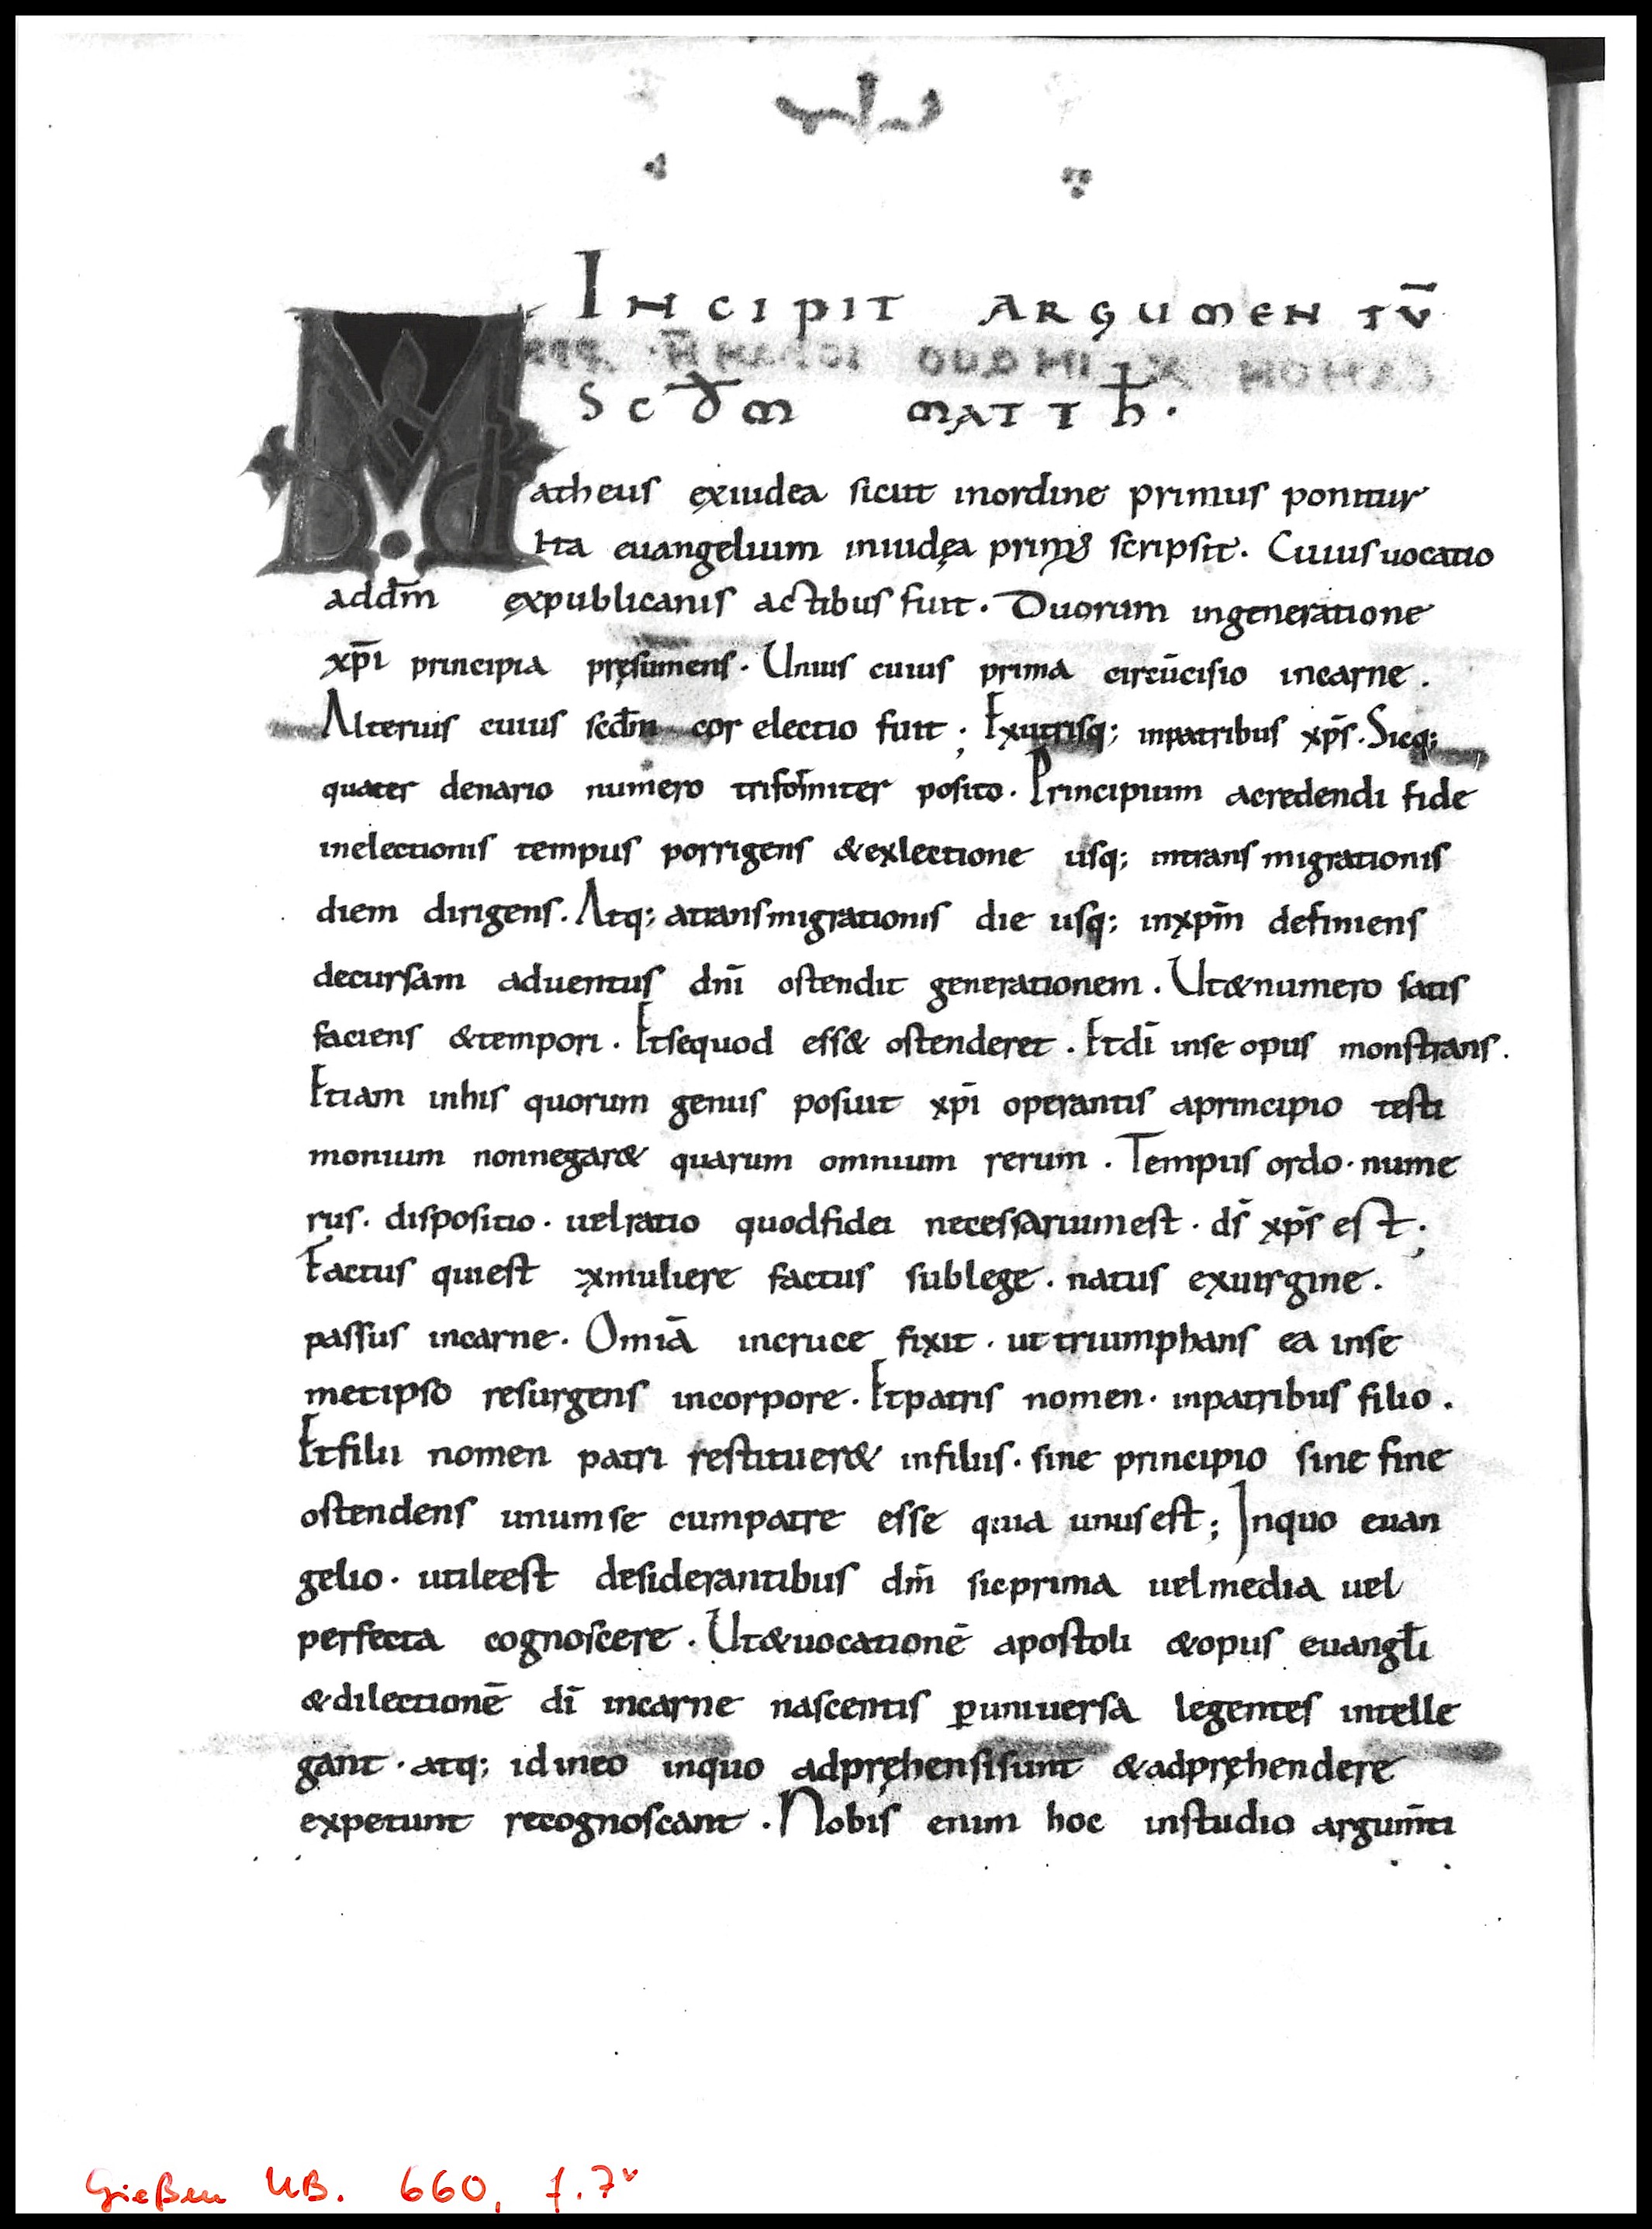 INCIPIT ARGUMENTŪ
SCD̄M MATTH̄.
Matheus exiudea sicut inordine primus ponitur
Ita euangelium iniudęa primus scripsit. Cuius uocatio
addm̄ expublicanis actibus fuit. Duorum ingeneratione
xp̄i principia pręsumens. Unius cuius prima circūcisio incarne.
Alterius cuius scd̄m cor electio fuit; Exutrisq; inpatribus xp̄s. Sicq;
quater denario numero triformiter posito. Principium acredendi fide
inelectionis tempus porrigens &exlectione usq; intransmigrationis
diem dirigens. Atq; atransmigrationis die usq; inxpm̄ definiens
decursam aduentus dnī ostendit generationem. Ut&numero satis
faciens &tempori. Etsequod ess& ostenderet. Etdī inse opus monstrans.
Etiam inhis quorum genus posuit xp̄i operantis aprincipio testi
monium nonnegar& quarum omnium rerum. Tempus ordo. nume
rus. dispositio. uelratio quodfidei necessariumest. ds̄ xp̄s est;
Factus quiest exmuliere factus sublege. natus exuirgine.
passus incarne. Omiā incruce fixit. ut triumphans ea inse
metipso resurgens incorpore. Etpatris nomen. inpatribus filio.
Etfilii nomen patri restituer& infiliis. sine principio sine fine
ostendens unumse cumpatre esse quia unusest; Inquo euan
gelio. utileest desiderantibus dm̄ sicprima uelmedia uel
perfecta cognoscere. Ut&uocationē apostoli &opus euangl̄i
&dilectionē dī incarne nascentis ꝑuniuersa legentes intelle
gant. atq; idineo inquo adpręhensisunt &adpręhendere
expetunt recognoscant. Nobis enim hoc instudio argum̄ti
Gießen UB. 660, f. 7v